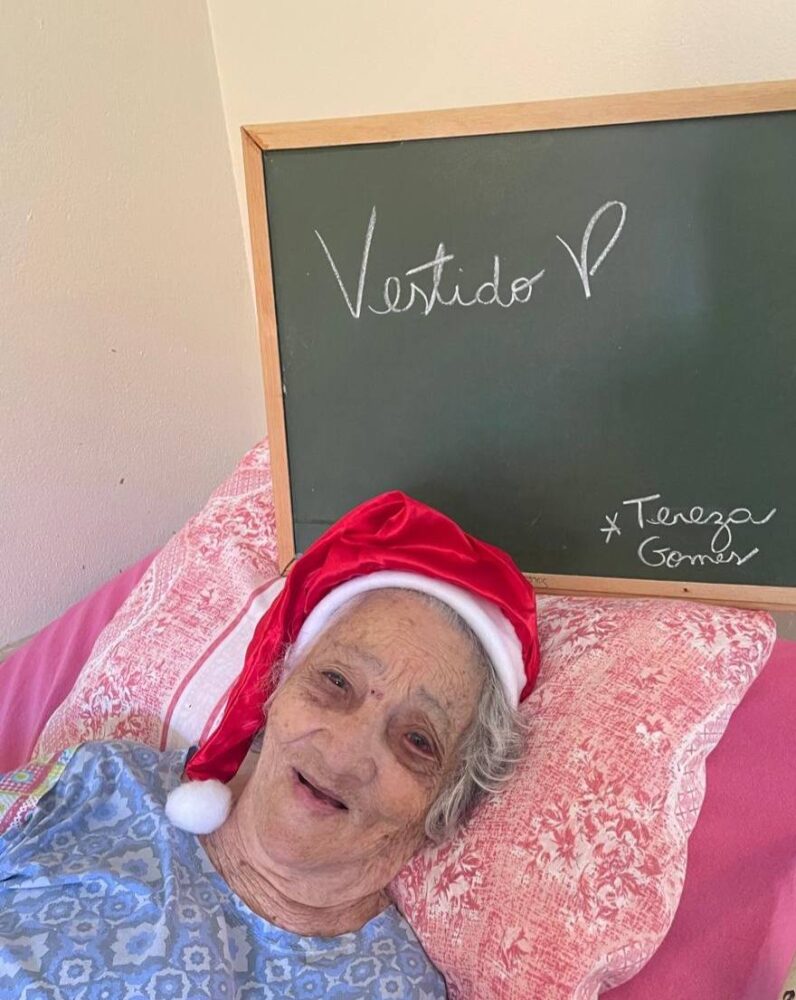 Vestido
* Tereza
Gomes